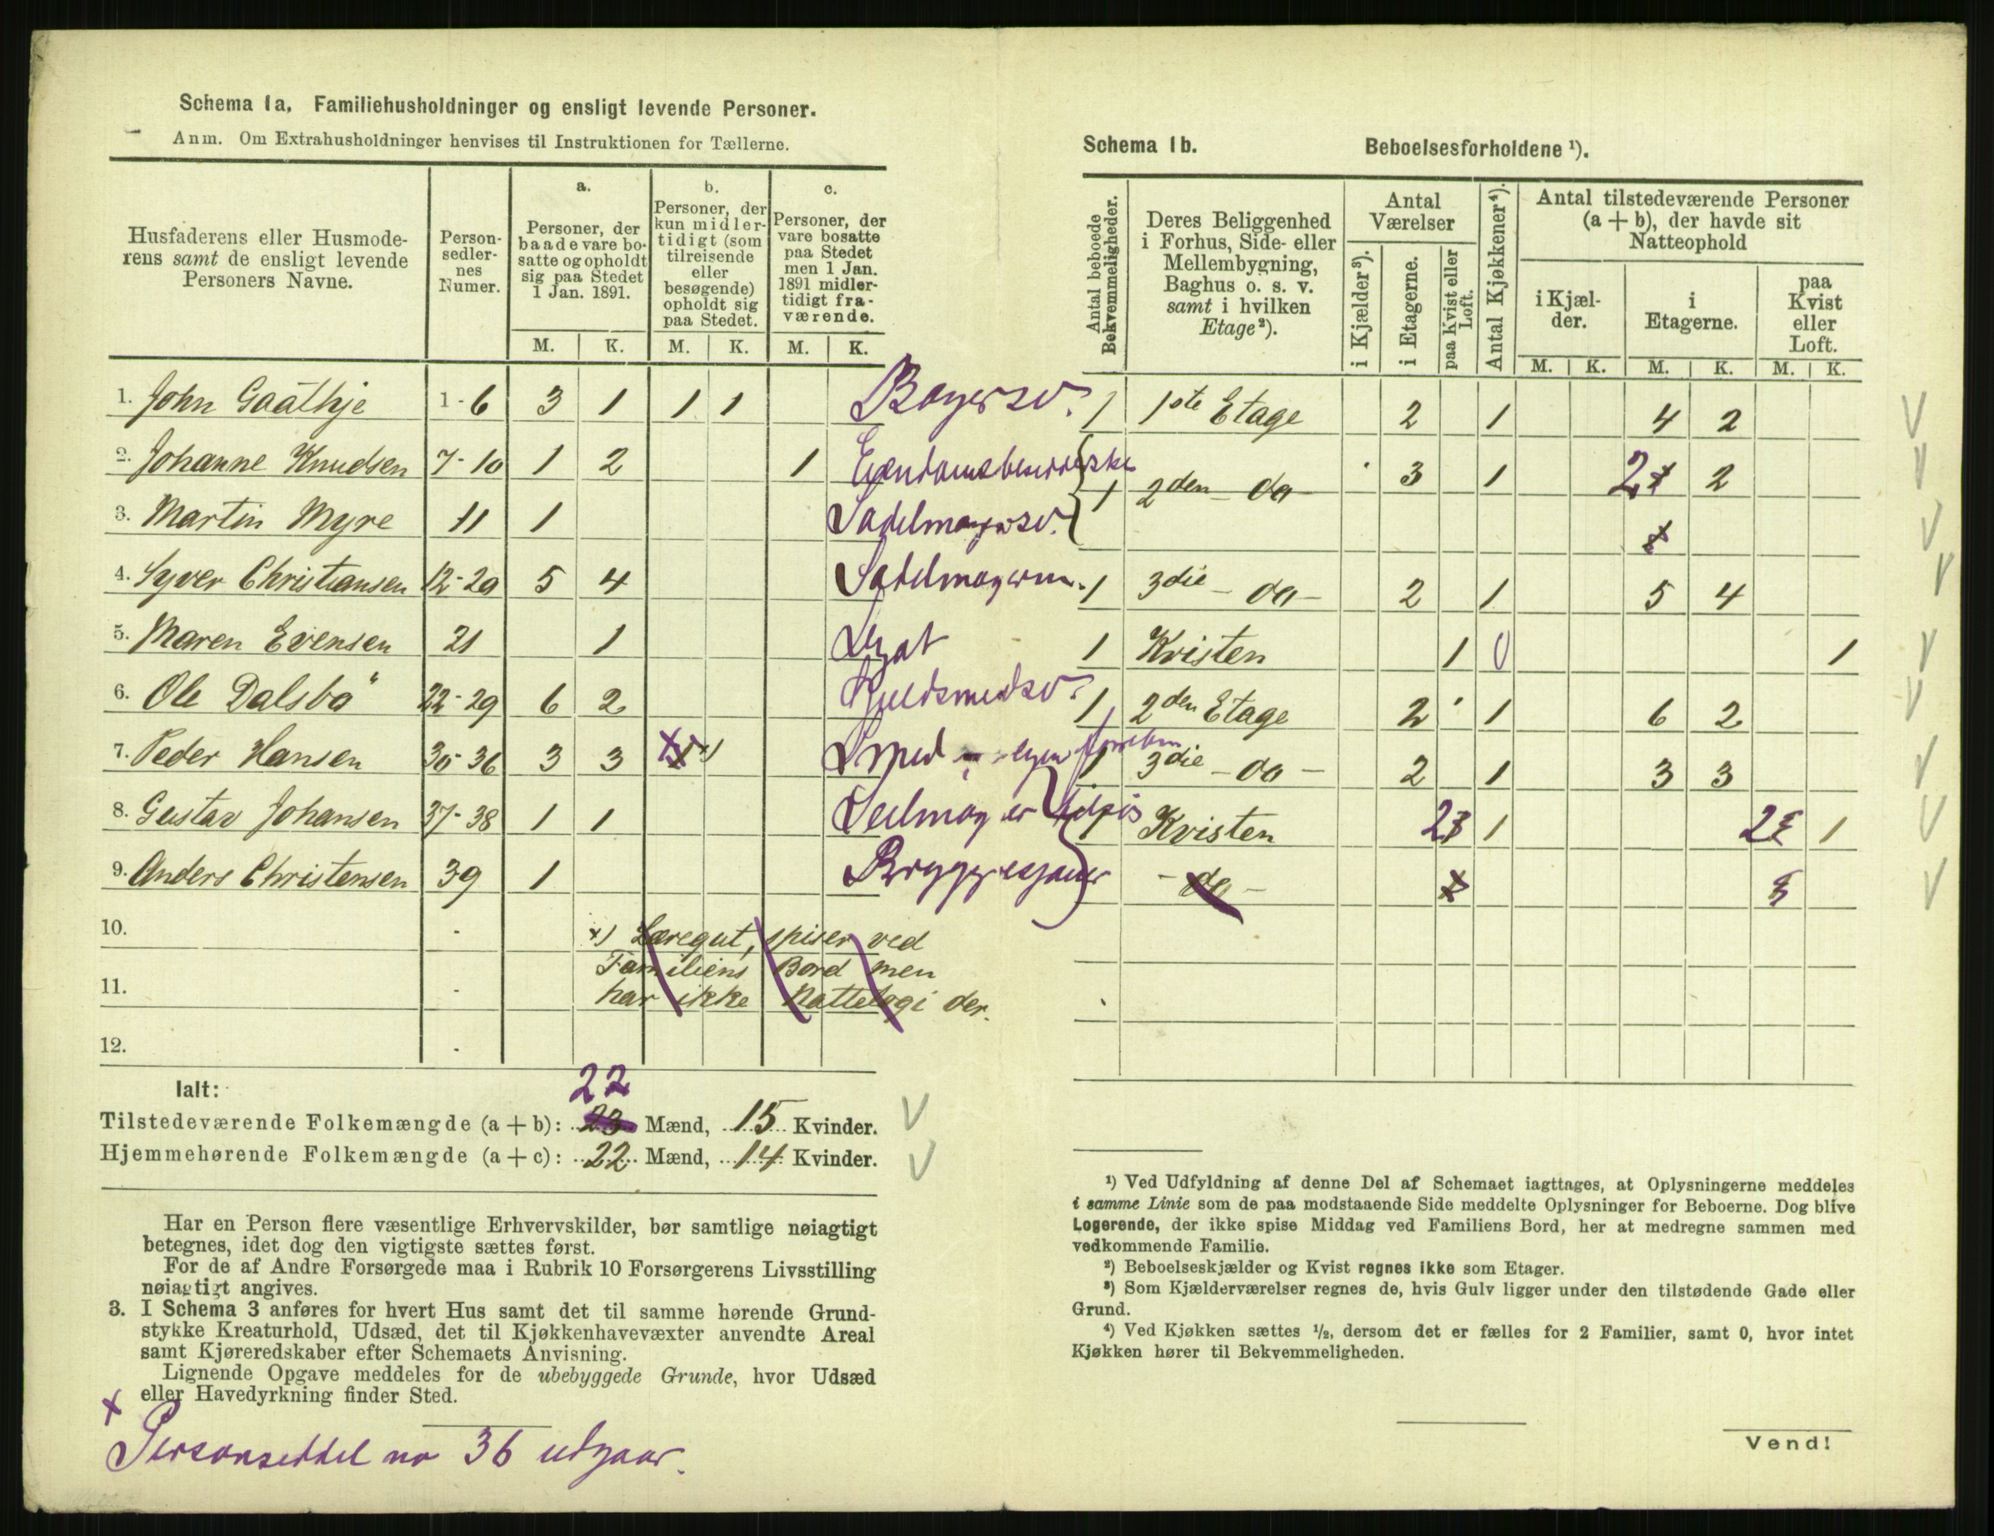 Schema 1a. Familiehusholdninger og ensligt levende Personer.
Anm. Om Extrahusholdninger henvises til Instruktionen for Tællerne.
Husfaderens eller Husmoderens samt de ensligt levende Personers Navne.
Personsedlernes Numer.
a. Personer, der baade vare bosatte og opholdt sig paa Stedet 1 Jan. 1891.
b. Personer, der kun midlertidigt (som tilreisende eller besøgende) opholdt sig paa Stedet.
c. Personer, der vare bosatte paa Stedet men 1 Jan. 1891 midlertidigt fraværende.
M. K. M. K. M. K.
1. John Gaathje 1-6 3 1 1 1
2. Johanne Knudsen 7-10 1 2 1
3. Martin Myre 11 1 Sadelmagersv.
4. Syver Christiansen 12-20 5 4
5. Maren Evensen 21 1 Legat
6. Ole Dalsbö 22-29 6 2 Guldsmedsv.
7. Peder Hansen 30-36 3 3 Smed
8. Gustav Johansen 37-38 1 1
9. Anders Christensen 39 1
10.
11.
12.
x) Læregut, spiser ved
Familiens Bord men
har ikke Nattelogi der.
Ialt:
22
Tilstedeværende Folkemængde (a + b): 23 Mænd, 15 Kvinder.
Hjemmehørende Folkemængde (a + c): 22 Mænd, 14 Kvinder.
Har en Person flere væsentlige Erhvervskilder, bør samtlige nøiagtigt
betegnes, idet dog den vigtigste sættes først.
For de af Andre Forsørgede maa i Rubrik 10 Forsørgerens Livsstilling
nøiagtigt angives.
3. I Schema 3 anføres for hvert Hus samt det til samme hørende Grund-
stykke Kreaturhold, Udsæd, det til Kjøkkenhavevæxter anvendte Areal
samt Kjøreredskaber efter Schemaets Anvisning.
Lignende Opgave meddeles for de ubebyggede Grunde, hvor Udsæd
eller Havedyrkning finder Sted.
x
Personseddel no 36 udgaar.
Schema 1b. Beboelsesforholdene ¹).
Antal beboede Bekvemmeligheder.
Deres Beliggenhed i Forhus, Side- eller Mellembygning, Baghus o. s. v. samt i hvilken Etage²).
Antal Værelser
i Kjælder³).
i Etagerne.
paa Kvist eller Loft.
Antal Kjøkkener⁴).
Antal tilstedeværende Personer (a + b), der havde sit Natteophold
i Kjælder.
i Etagerne.
paa Kvist eller Loft.
M. K. M. K. M. K.
1 1ste Etage 2 1 4 2
1 2den - do - 3 1 2 2
1 3die - do - 2 1 5 4
1 Kvisten 1 0 1
1 2den Etage 2 1 6 2
1 3die - do - 2 1 3 3
1 Kvisten 2 1 2 1
- do -
¹) Ved Udfyldning af denne Del af Schemaet iagttages, at Oplysningerne meddeles
i samme Linie som de paa modstaaende Side meddelte Oplysninger for Beboerne. Dog blive
Logerende, der ikke spise Middag ved Familiens Bord, her at medregne sammen med
vedkommende Familie.
²) Beboelseskjælder og Kvist regnes ikke som Etager.
³) Som Kjælderværelser regnes de, hvis Gulv ligger under den tilstødende Gade eller
Grund.
⁴) Ved Kjøkken sættes ½, dersom det er fælles for 2 Familier, samt 0, hvor intet
Kjøkken hører til Bekvemmeligheden.
Vend!